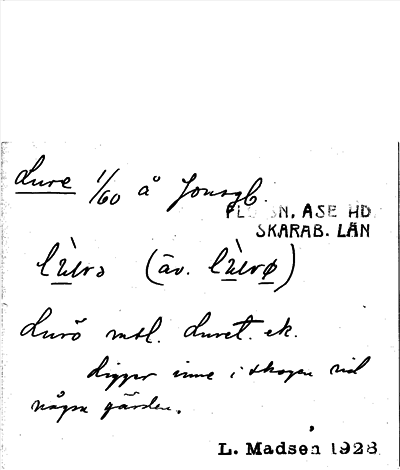 Lure 1/60 å Jonsgb.
FLO SN, ASE HD
SKARAB. LÄN
lùrə (äv. lùrø)
Lurö mtl. Luret. ek.
Ligger inne i skogen vid
några gärden.
L. Madsen 1928